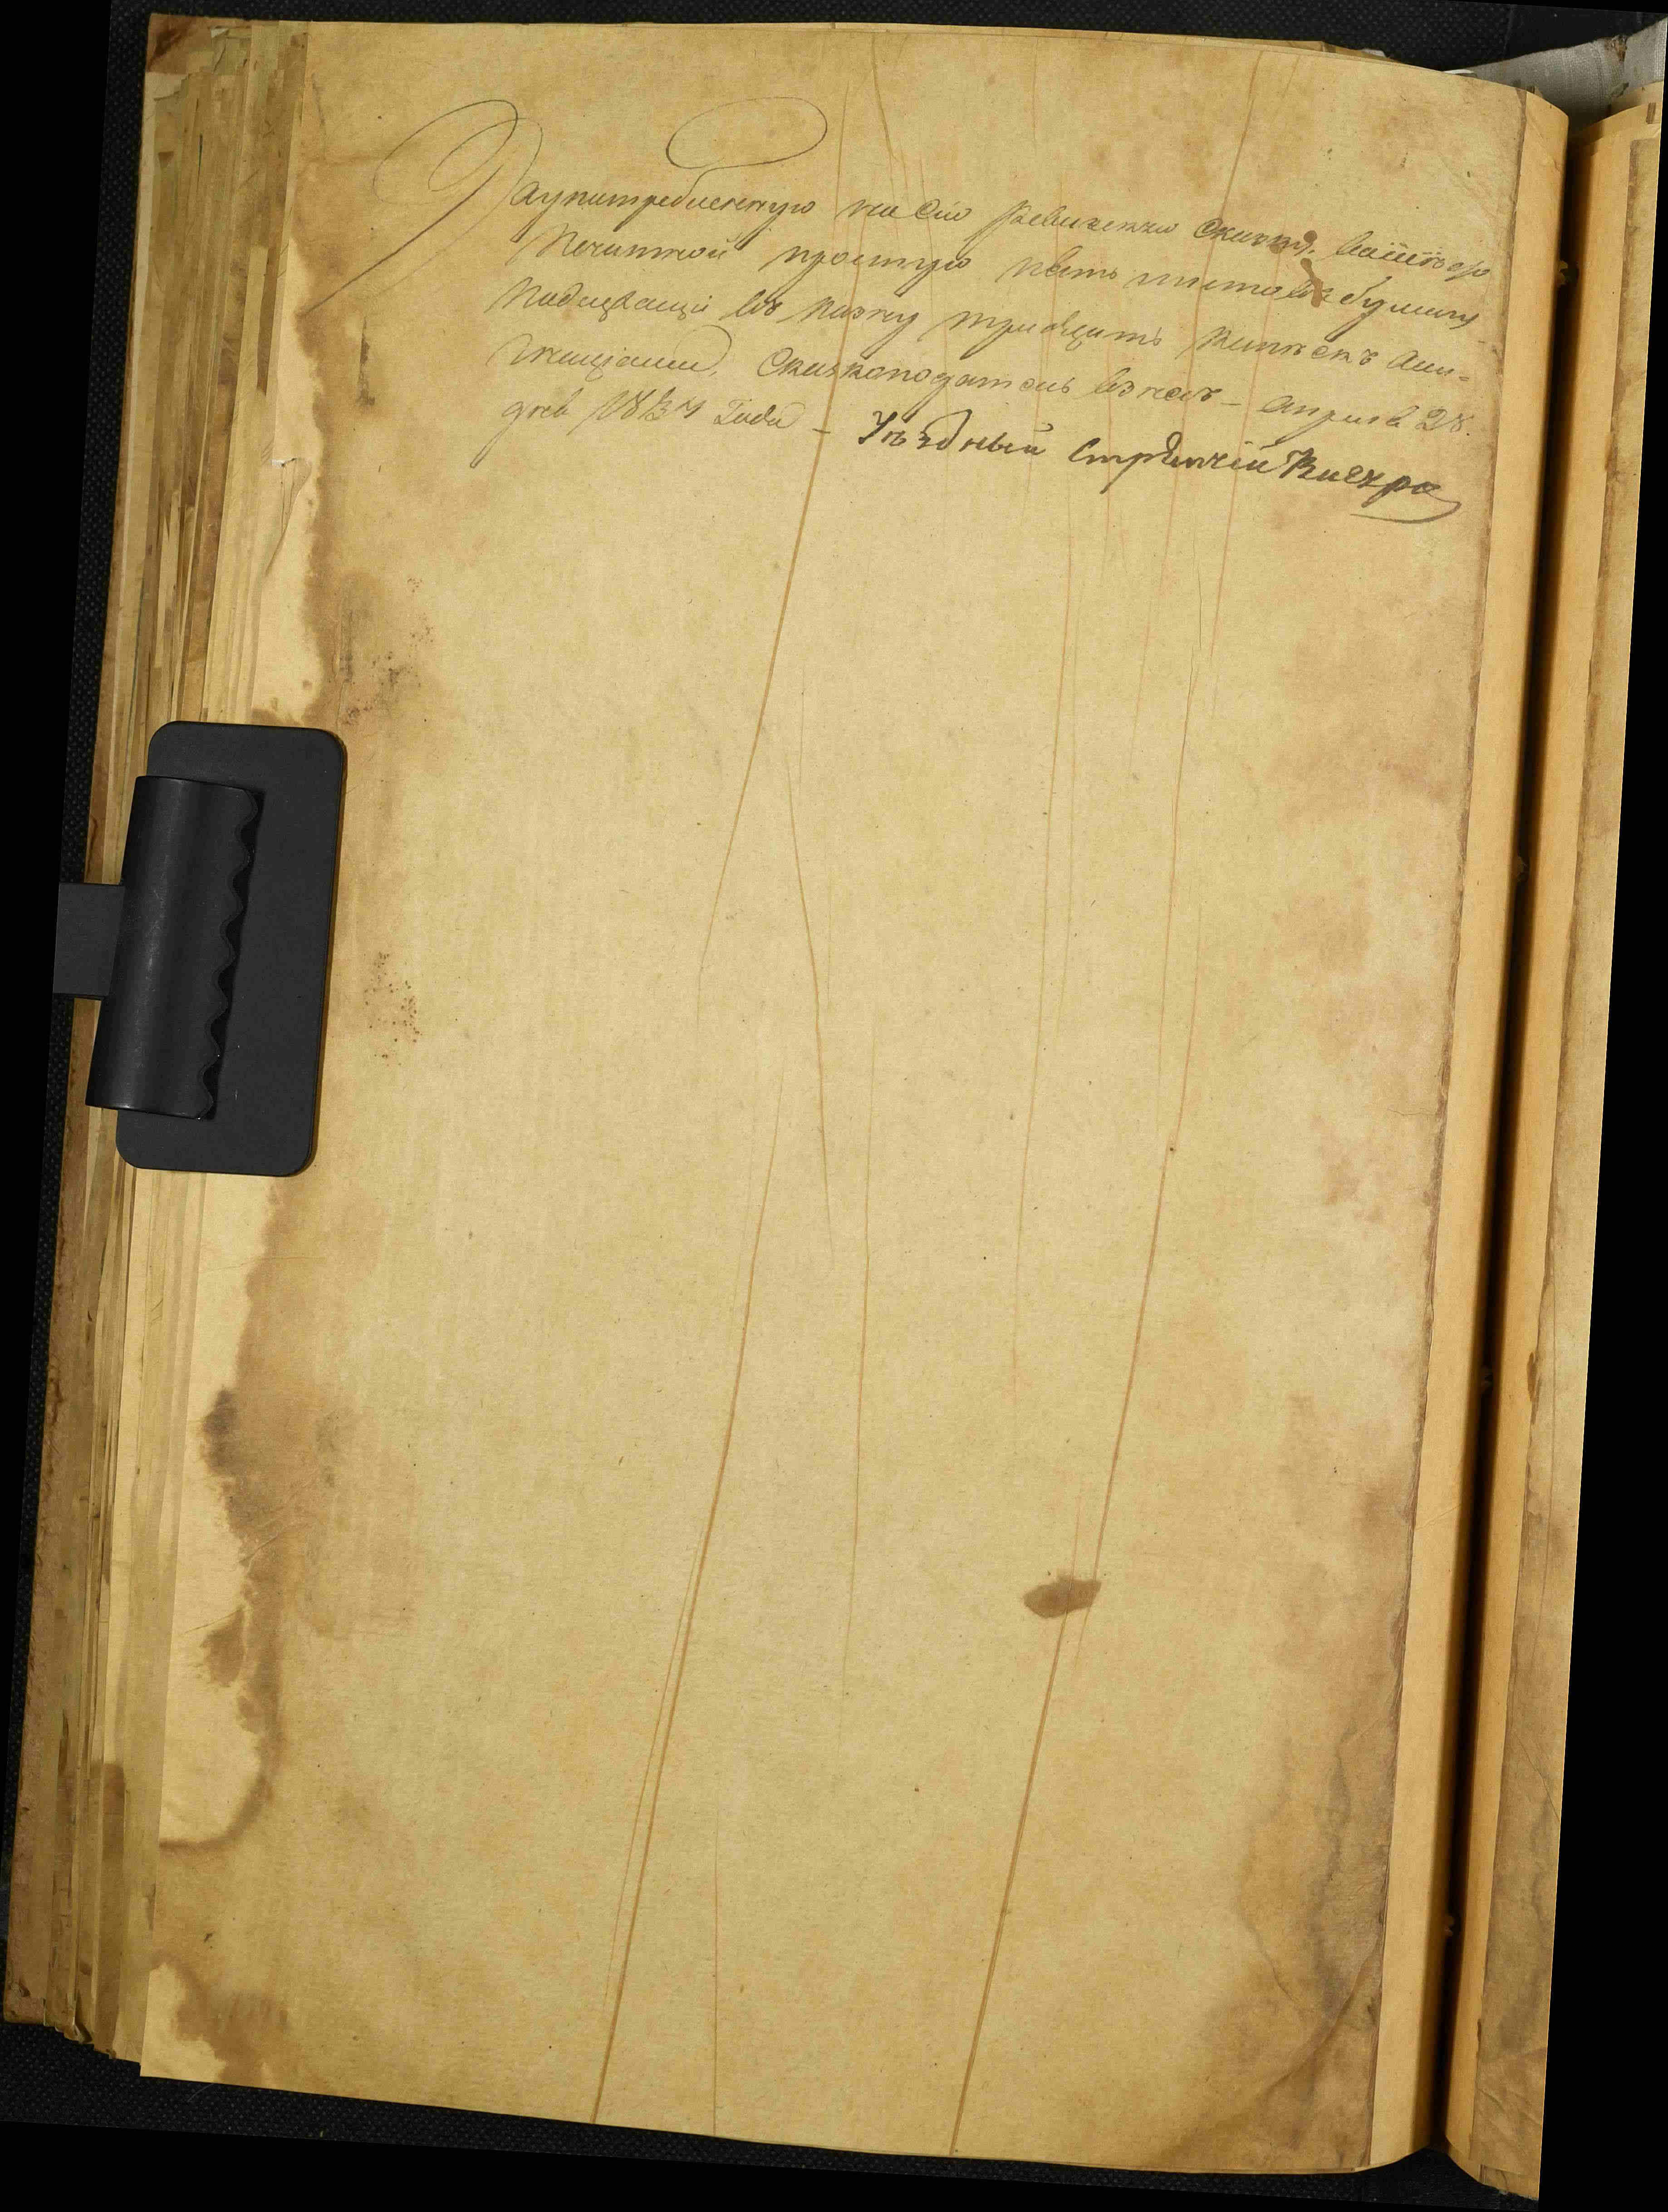 Заупитребленную на сію Ревизскую Скизку, вмѣсто
Печатной простую пять листовъ бумагу
Подлежащіи въ казну тридцать Копѣекъ Асиг-
нациями, Сказкоподатель взнесъ - Апреля 28.
дня 1834 Года - Уѣздный Стряпчій